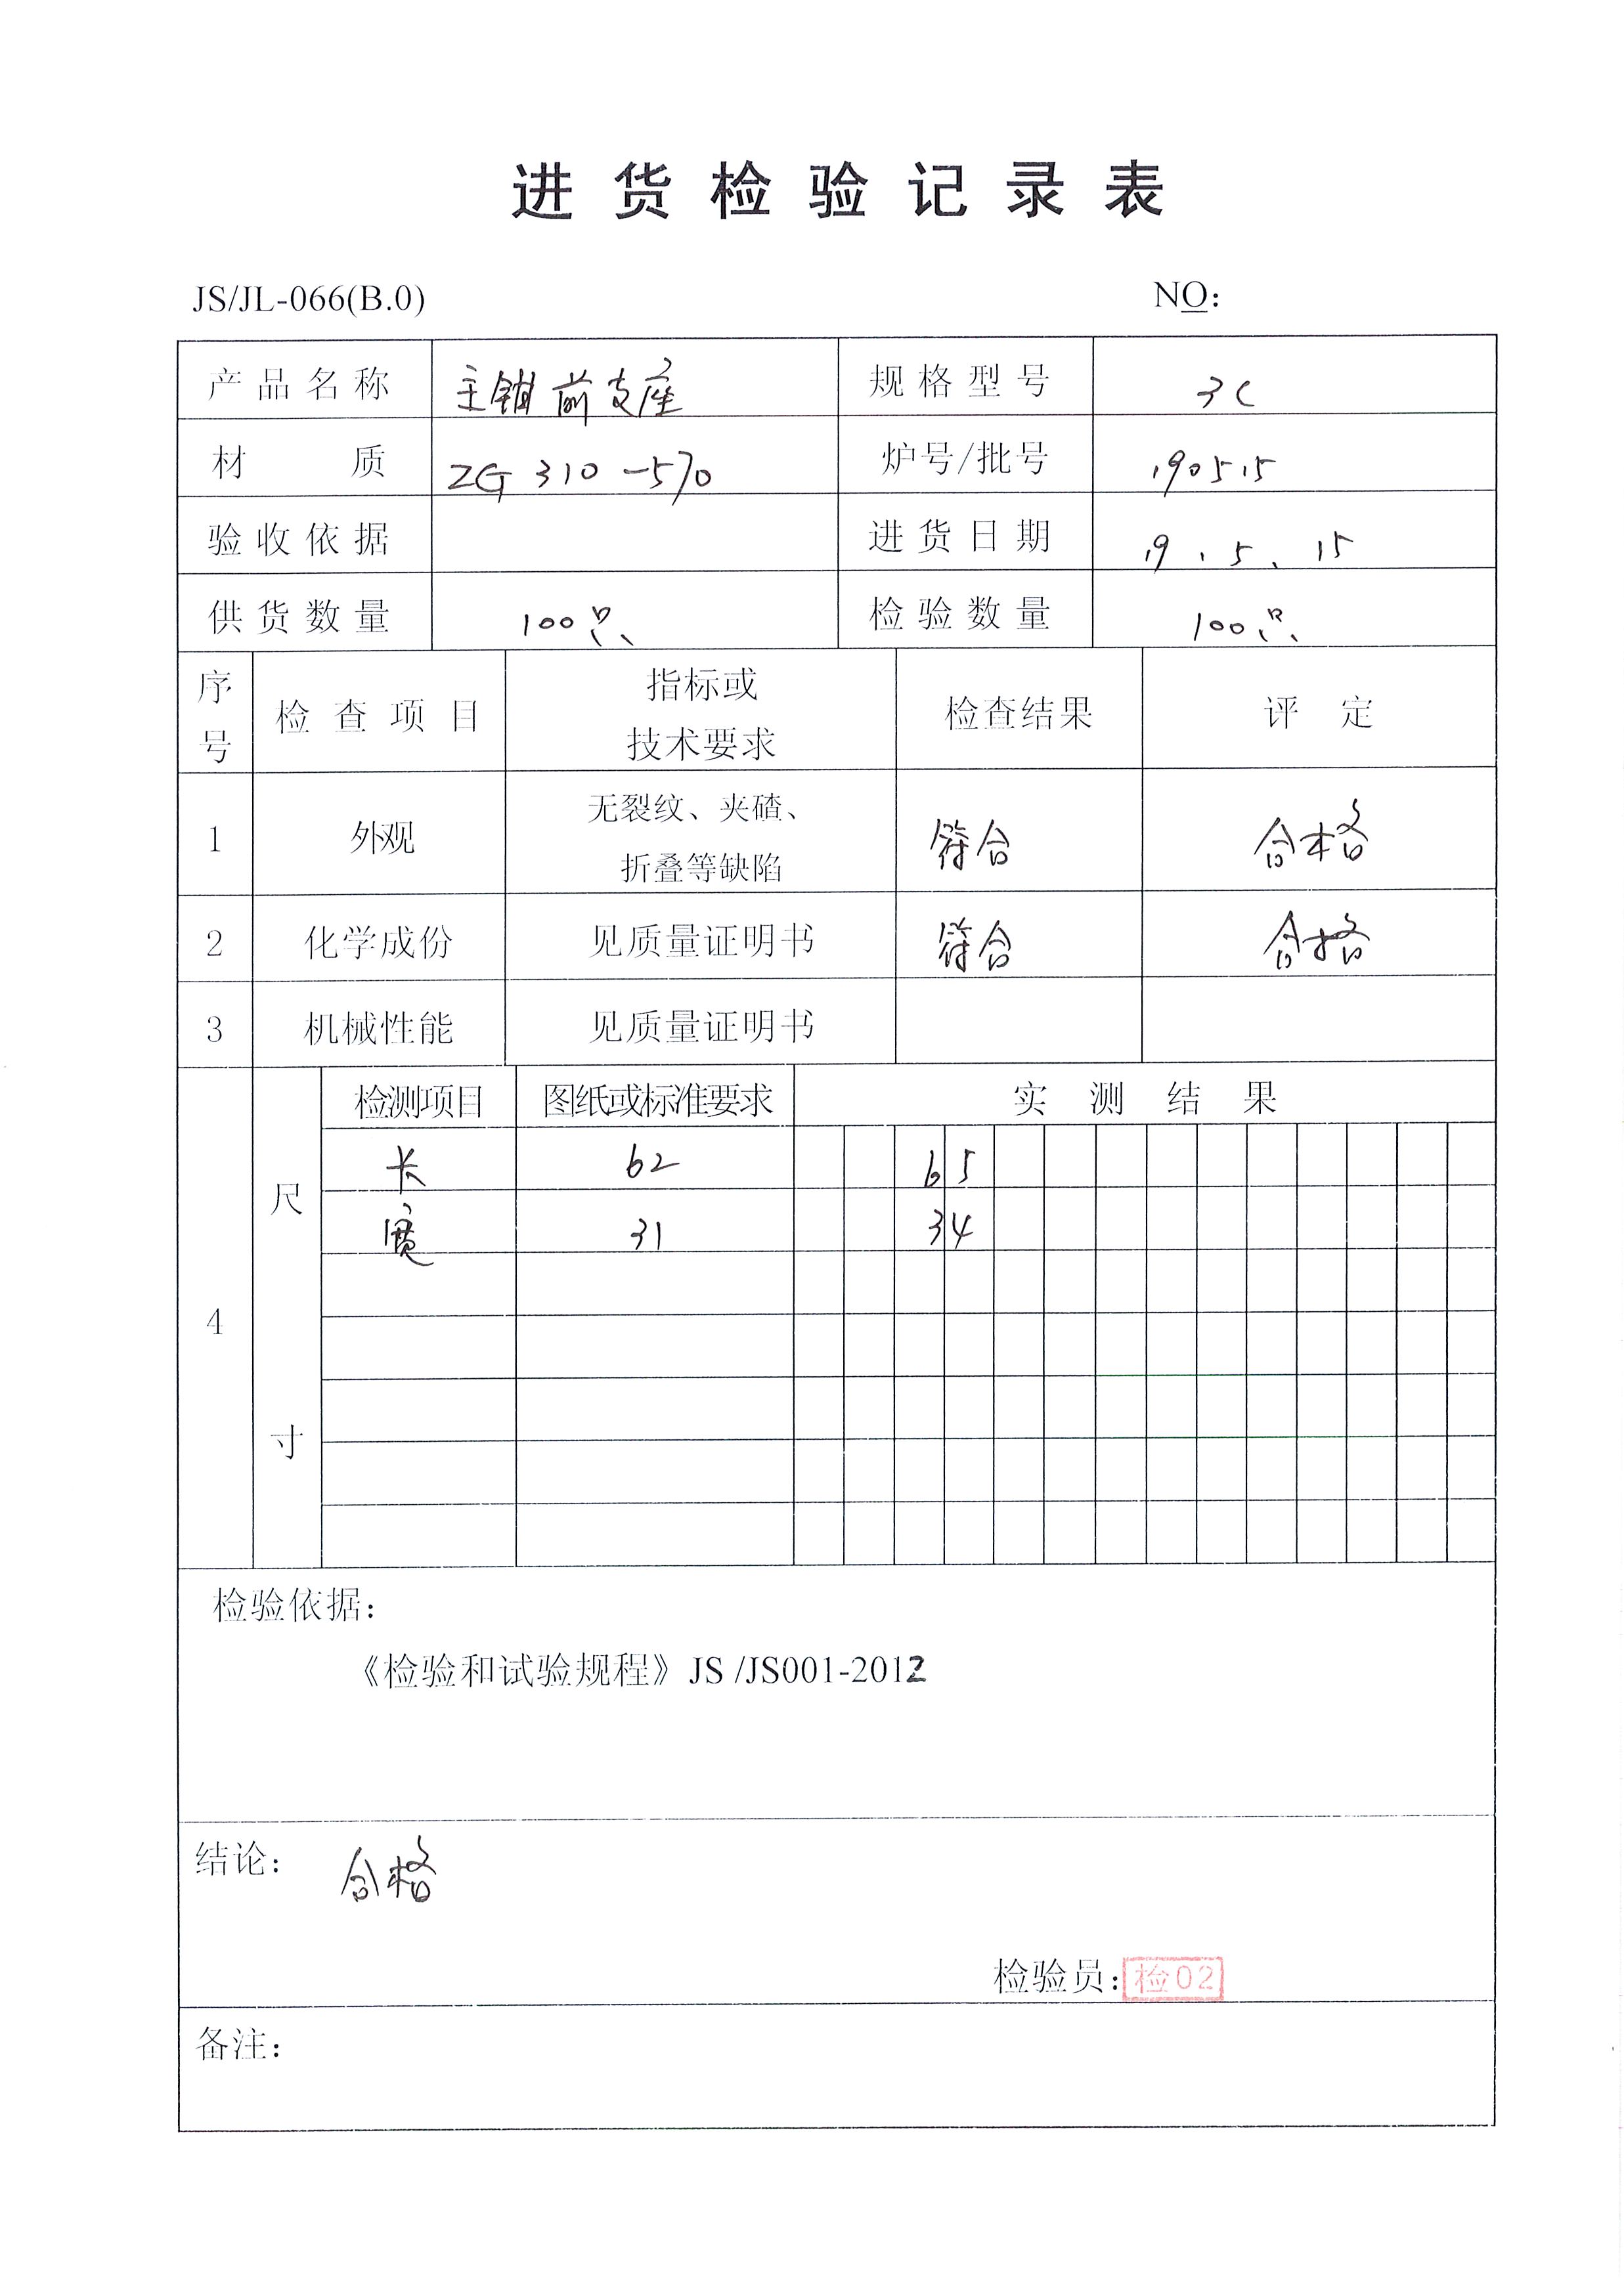 进货检验记录表
JS/JL-066(B.0) NO:
产品名称 主钳前支座 规格型号 3C
材质 ZG 310-570 炉号/批号 190515
验收依据 进货日期 19.5.15
供货数量 100只 检验数量 100只
序号 检查项目 指标或技术要求 检查结果 评定
1 外观 无裂纹、夹碴、折叠等缺陷 符合 合格
2 化学成份 见质量证明书 符合 合格
3 机械性能 见质量证明书
4 尺寸 检测项目 图纸或标准要求 实测结果
长 62 65
宽 31 34
检验依据:
《检验和试验规程》JS /JS001-2012
结论: 合格
检验员: 检02
备注: